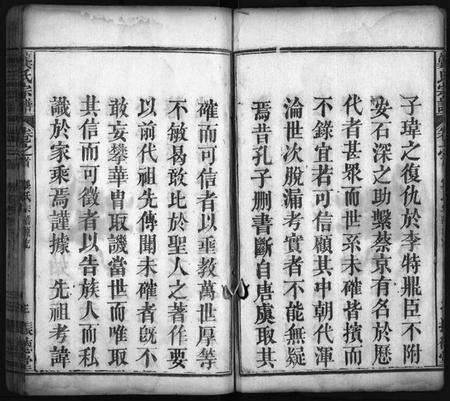 子瑋之復仇於李特鼎臣不附
安石深之助繫蔡京有名於歷
代者甚衆而世系未確皆擯而
不錄宜若可信顧其中朝代渾
淪世次脫漏考實者不能無疑
焉昔孔子刪書斷自唐虞取其
確而可信者以乘教萬世厚等
不敏曷敢比於聖人之著作要
以前代祖先傳聞未確者旣不
敢妄攀華胄取譏當世而唯取
其信而可徵者以告族人而私
識於家乘焉謹據 先祖考諱
氏宗譜